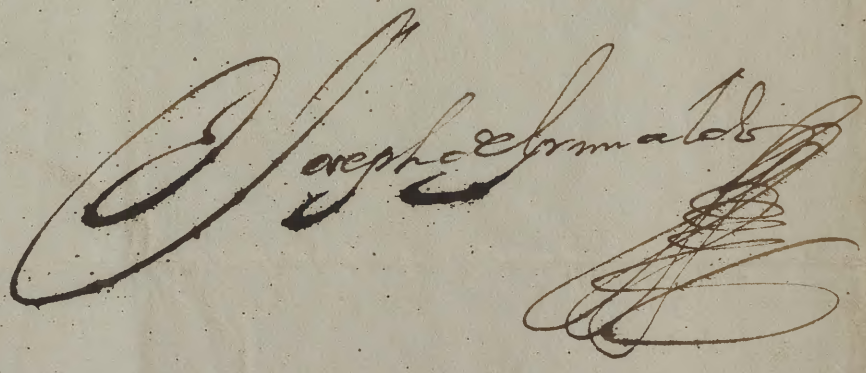 Joseph de Grimaldo